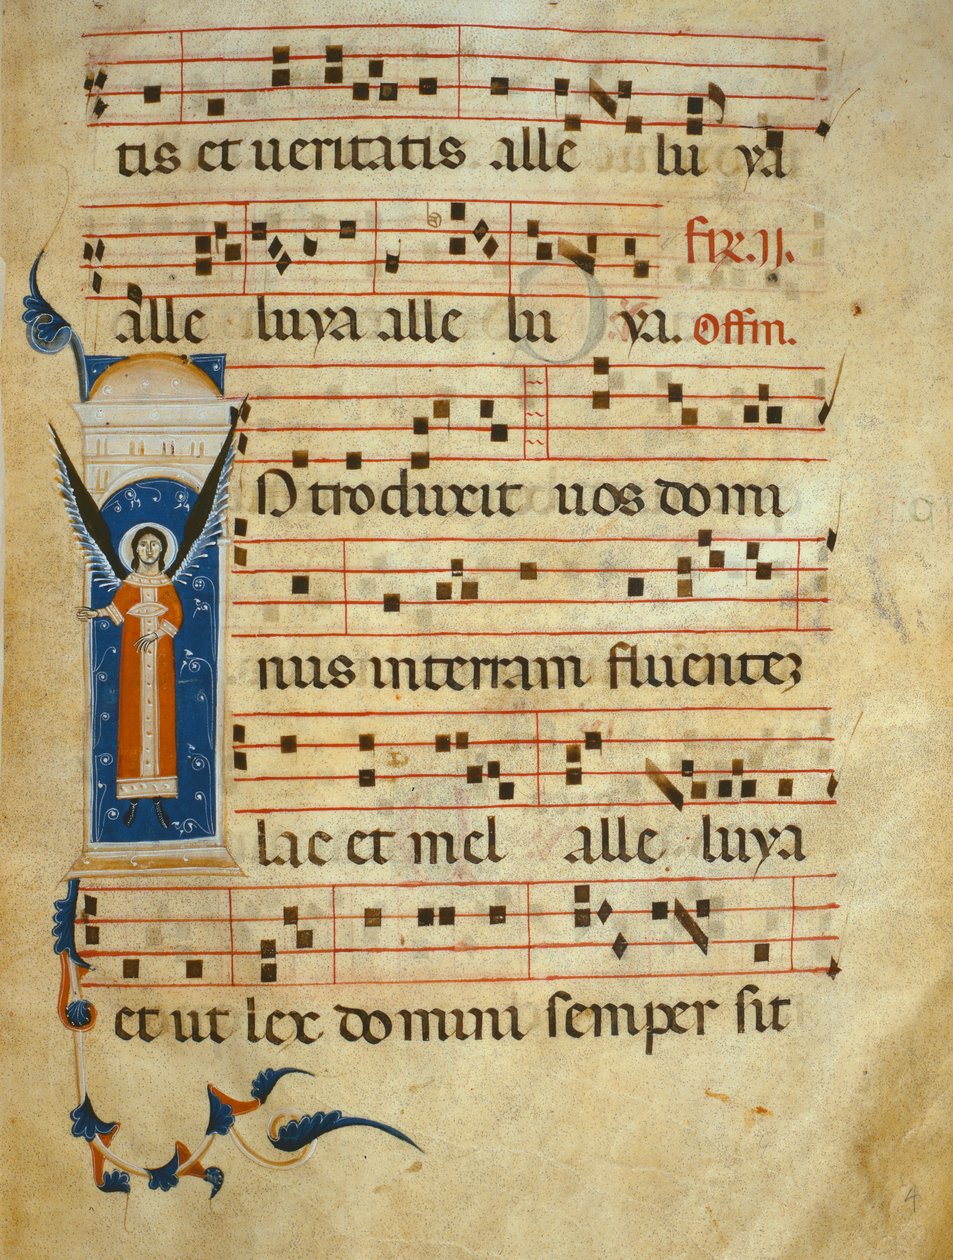 tis et ueritatis alle lu ya
alle luya alle lu ya. fir.ii.
Offm.
Ntroduxit uos domi
nus interram fluentez
lac et mel alle luya
et ut lex domini semper sit
4